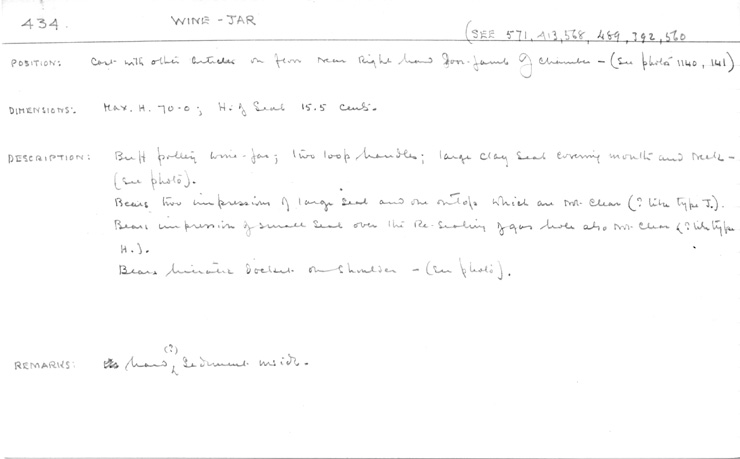 434. WINE-JAR
(SEE 571, 413, 568, 489, 392, 560
POSITION: Cast with other articles on floor near Right hand Door-jamb of Chamber - (See photos 1140, 1141)
DIMENSIONS: Max. H. 70.0; H. of Seal 15.5 cents.
DESCRIPTION: Buff pottery wine-jar; two loop handles; large clay seal covering mouth and neck -
(See photo).
Bears two impressions of large seal and one on top which are not clear (? like type J.).
Bears impression of small seal over the Re-sealing of gas hole also not clear (? like type
H.).
Bears hieratic Docket on Shoulder - (See photo).
REMARKS: hard (?) Sediment inside.